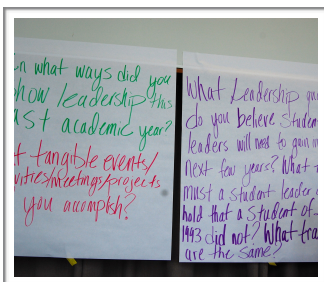 n what ways did you
how leadership this
ast academic year?
t tangible events/
vities/meetings/projects
you accomplish?
What Leadership qu
do you believe studen
leaders will need to gain in
next few years? What t
must a student leader
hold that a student of
1993 did not? What tra
are the same?